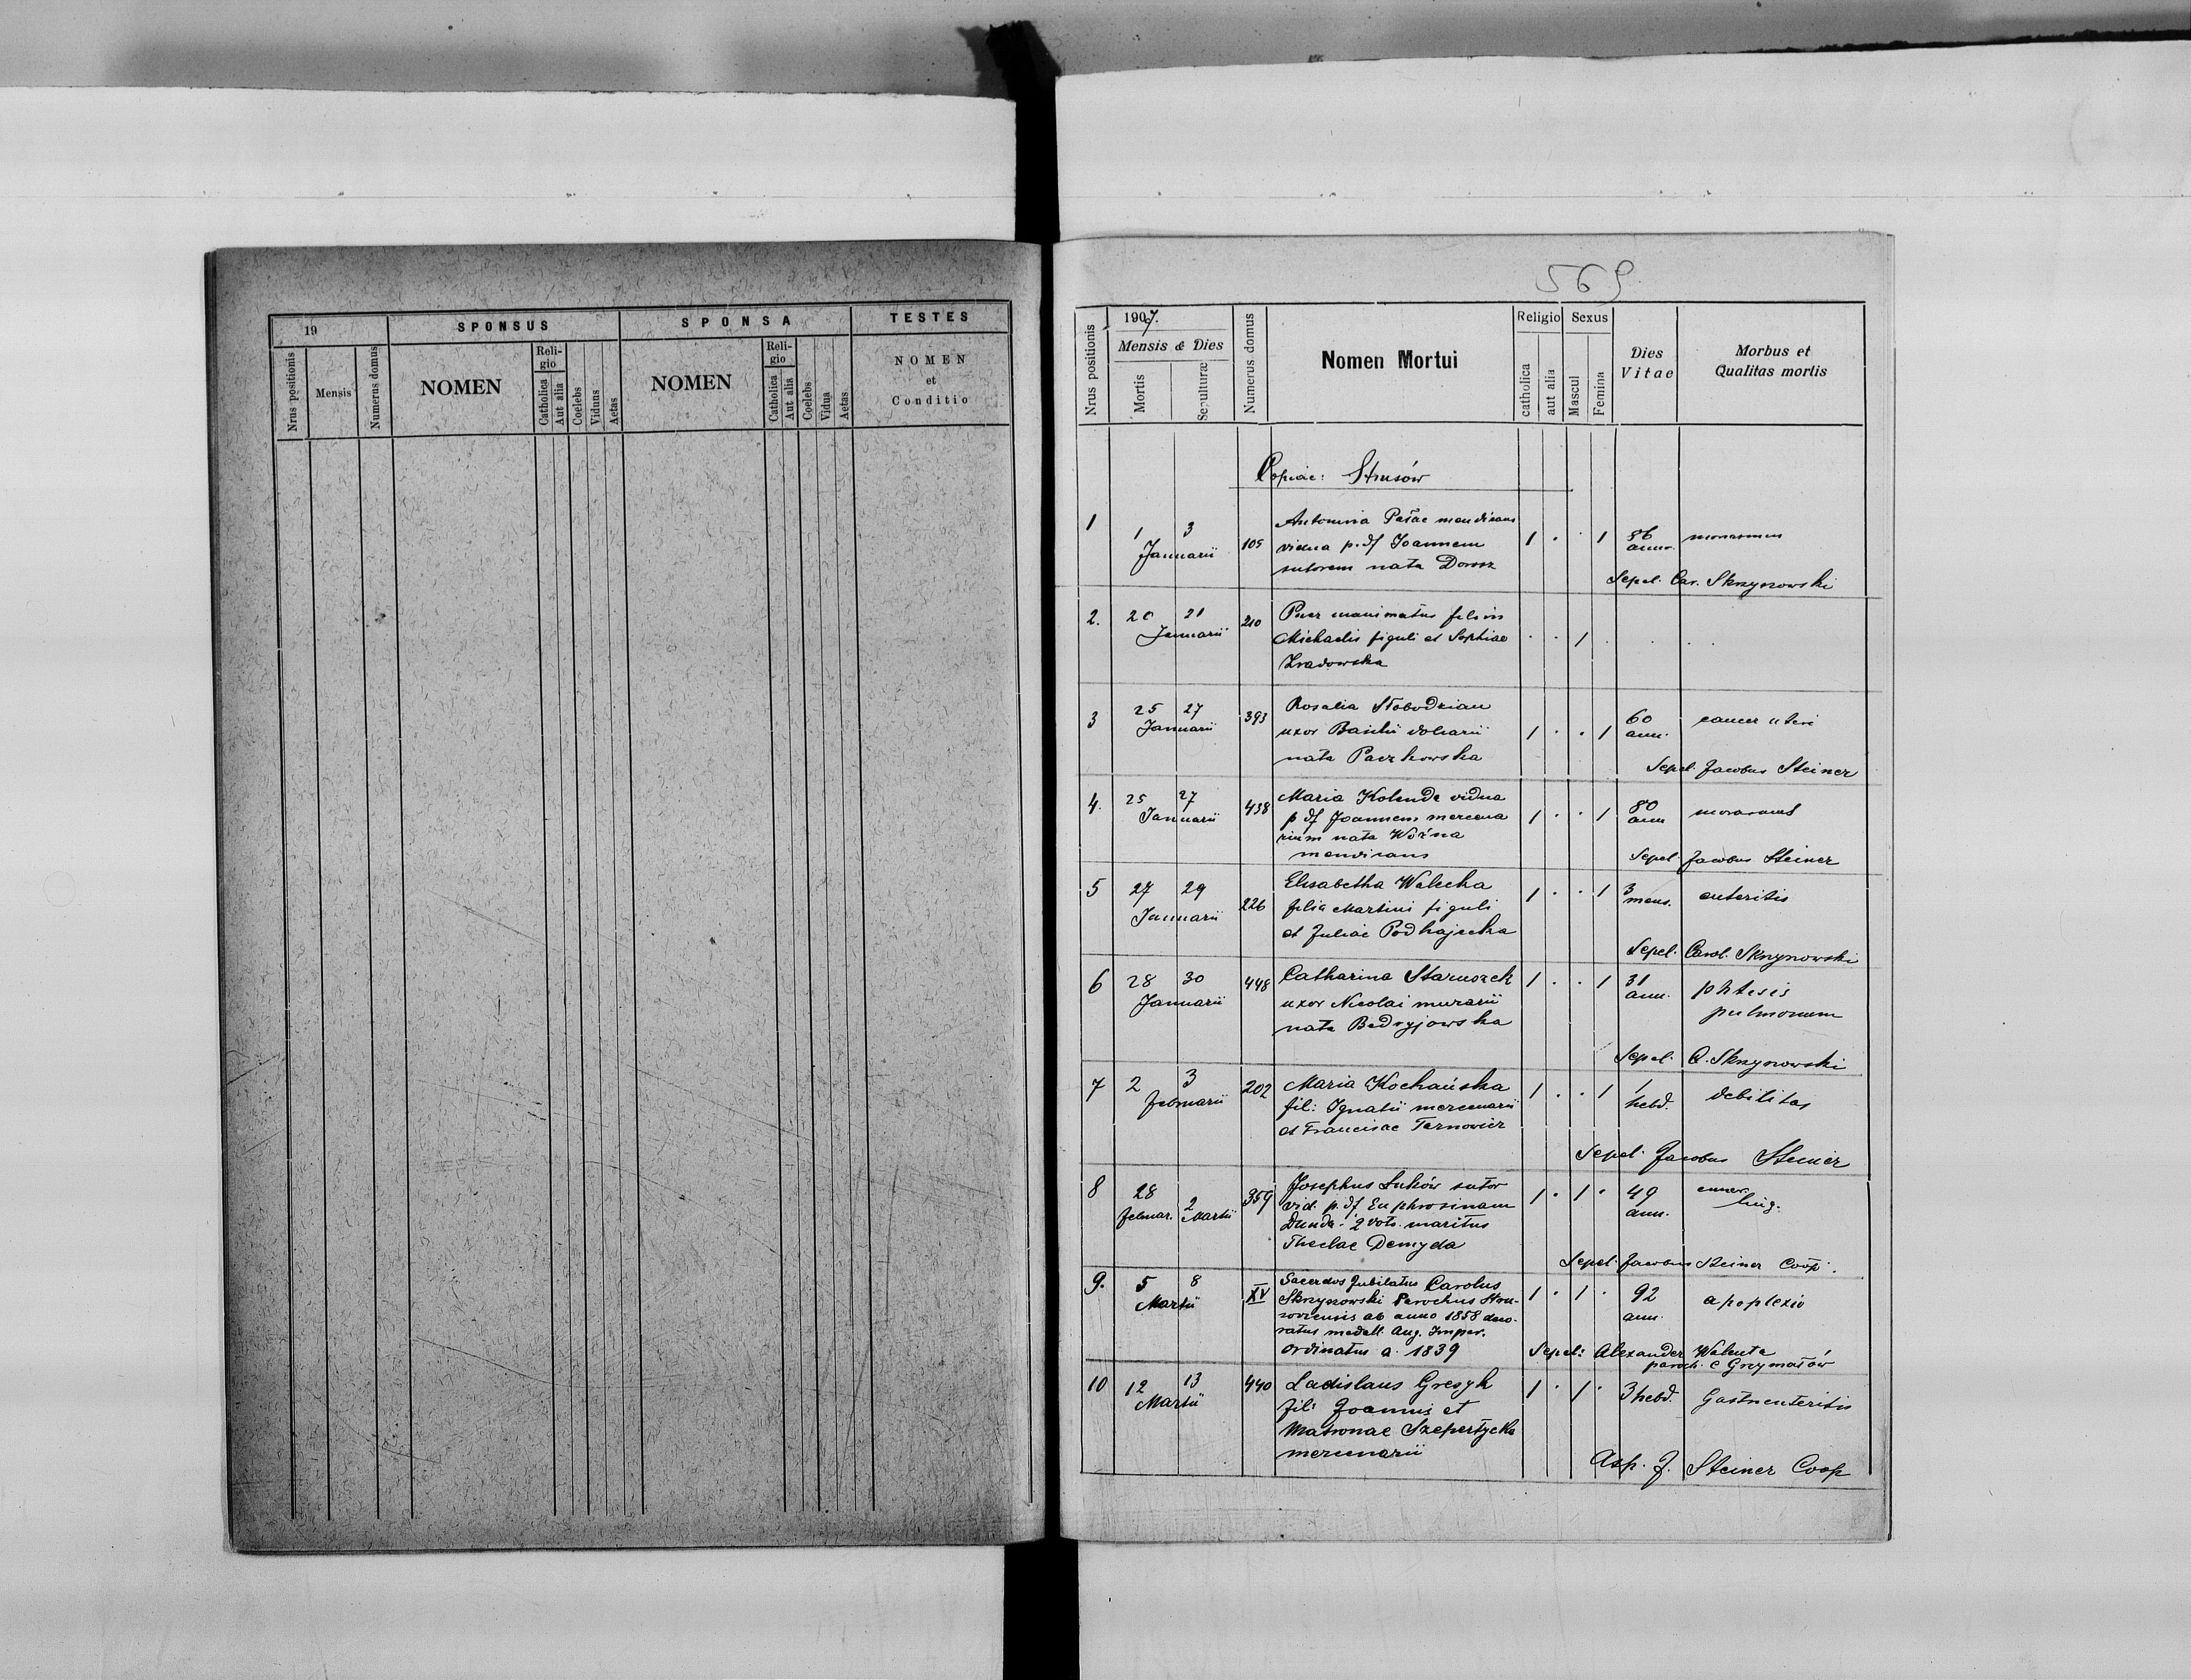 19
SPONSUS
SPONSA
TESTES
Nrus positionis
Mensis
Numerus domus
NOMEN
Reli-
gio
Catholica
Aut alia
Coelebs
Viduus
Aetas
NOMEN
Reli-
gio
Catholica
Aut alia
Coelebs
Vidua
Aetas
NOMEN
et
Conditio
569
Nrus positionis
1907.
Mensis & Dies
Mortis
Sepulturæ
Numerus domus
Nomen Mortui
Religio
catholica
aut alia
Sexus
Mascul
Femina
Dies
Vitae
Morbus et
Qualitas mortis
Copiae: Strusów
1
1 3
Januarii
105
Antonina Pałac mendicans
vidua p. df Joannem
sutorem nata Dorosz
1 . . 1
86
ann.
Sepel. Car. Skrzynowski
2.
20 21
Januarii
210
Puer inanimatus filius
Michaelis figuli et Sophiae
. . 1 . . . .
3
25 27
Januarii
393
Rosalia Słobodzian
uxor Basilii doliarii
nata Paczkowska
1 . . 1
60
ann.
cancer uteri
Sepel. Jacobus Steiner
4.
25 27
Januarii
438
Maria Kolenda vidua
p df Joannem mercena
rium nata Woźna
mendicans
1 . . 1
80
ann
Sepel. Jacobus Steiner
5
27 29
Januarii
226
Elisabetha Walecka
filia Martini figuli
et Juliae Podhajecka
1 . . 1
3
mens.
enteritis
Sepel. Carol. Skrzynowski
6
28 30
Januarii
448
Catharina Staruszck
uxor Nicolai murarii
nata Bedryjowska
1 . . 1
31
ann.
phtisis
pulmonum
Sepel. C. Skrzynowski
7
2 3
Februarii
202
Maria Kochańska
fil: Ignatii mercenarii
et Franciscae Tarnowicz
1 . . 1
1
hebd.
debilitas
Sepel. Jacobus Steiner
8
28
Februar.
2
Martii
359
Josephus Łuków sutor
vid. p. df Euphrosinam
Dunda - 2 voto. maritus
Theclae Demyda
1 . 1 .
49
ann.
Sepel. Jacobus Steiner Coop.
9.
5 8
Martii
XV
Sacerdos Jubilatus Carolus
Skrzynowski Parochus Stru-
soviensis ab anno 1858 deco-
ratus medall. Aug. Imper.
Ordinatus a. 1839
1 . 1 .
92
ann.
apoplexio
Sepel: Alexander Walenta
paroch. e Grzymałów
10
12 13
Martii
440
Ladislaus Gresyk
fil: Joannis et
Matronae Szepertycka
mercenarii
1 . 1 .
3 hebd.
Gastroenteritis
Asp. J. Steiner Coop